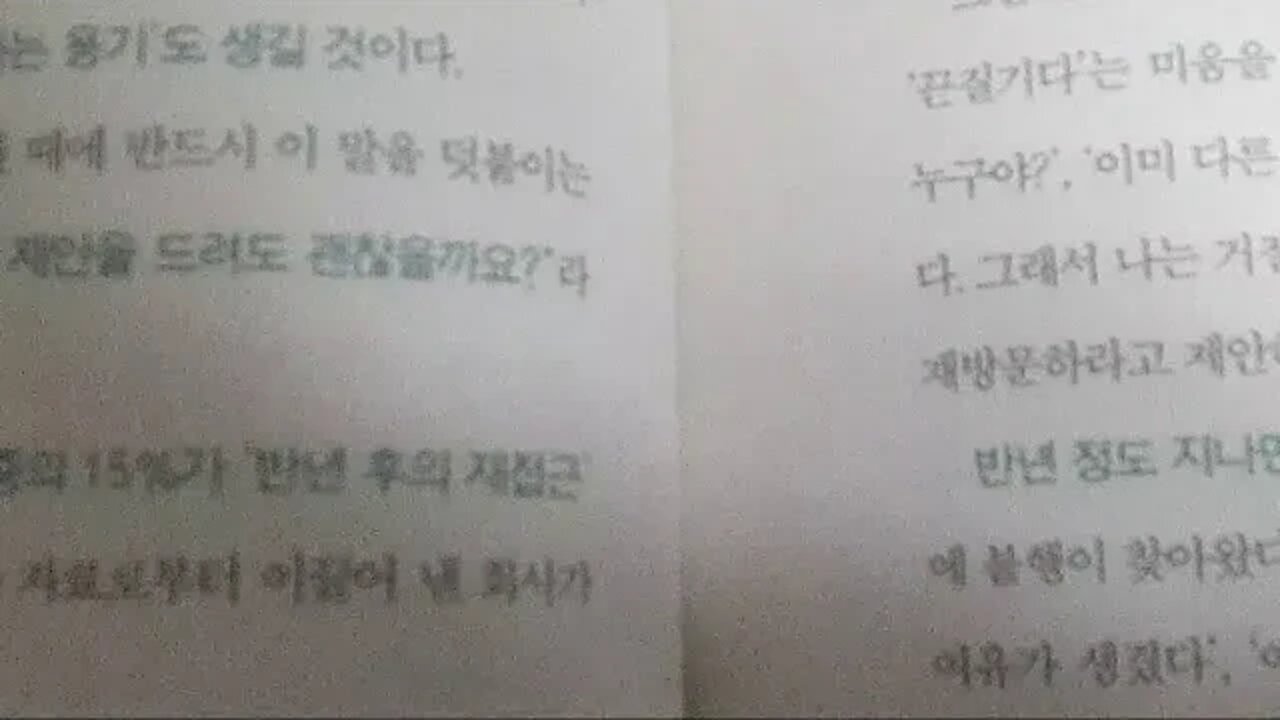 는 용기'도 생길 것이다.
때에 반드시 이 말을 덧붙이는
재안을 드려도 괜찮을까요?'라
중의 15%가 '반년 후의 재접근'
자료로부터 이끌어 낸 회사가
'끈질기다'는 미움을
누구야?', '이미 다른
다. 그래서 나는 거절
재방문하라고 제안
반년 정도 지나면
에 불행이 찾아왔다
여유가 생겼다',